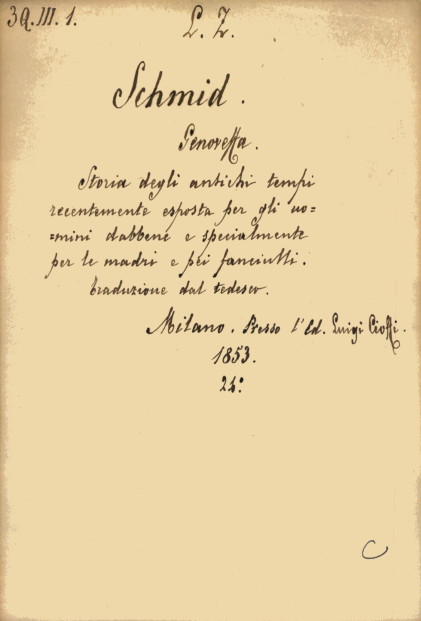 3Q.III.1.
L. Z.
Schmid.
Genoveffa.
Storia degli antichi tempi
recentemente esposta per gli uo=
=mini dabbene e specialmente
per le madri e pei fanciulli.
traduzione dal tedesco.
Milano. Presso l'Ed. Luigi Cioffi.
1853.
24º
C